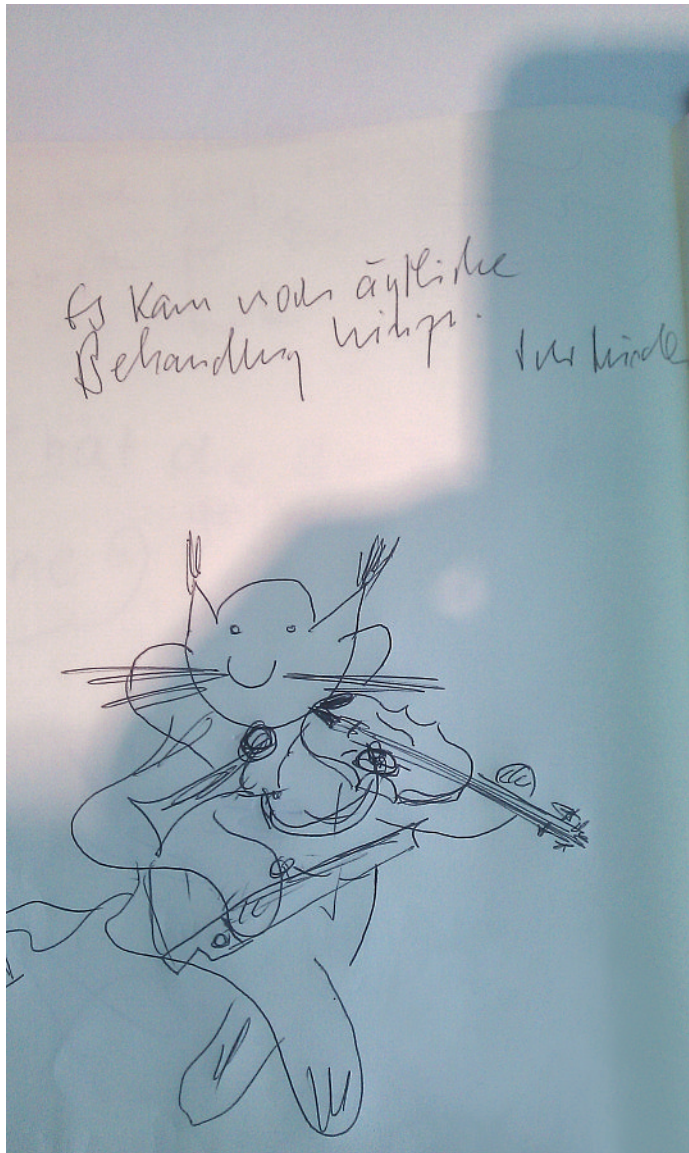 Es kam noch ärztliche
Behandlung hinzu.